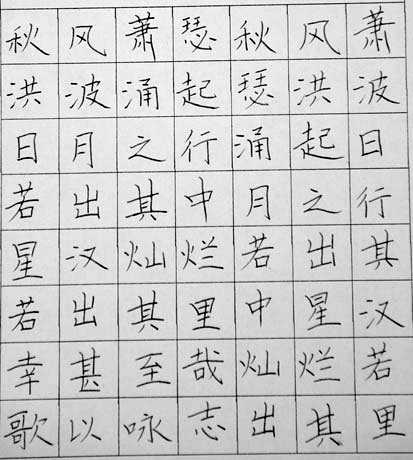 秋风萧瑟秋风萧
洪波涌起瑟洪波
日月之行涌起日
若出其中月之行
星汉灿烂若出其
若出其里中星汉
幸甚至哉灿烂若
歌以咏志出其里